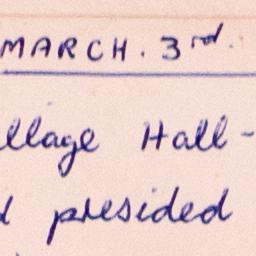 MARCH. 3rd.
llage Hall-
d presided